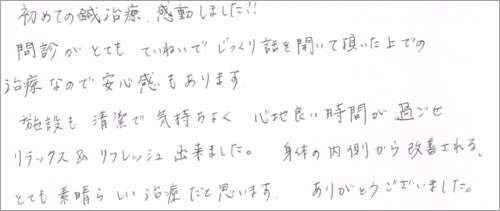 初めての鍼治療、感動しました!!
問診がとてもていねいでじっくり話を聞いて頂いた上での
治療なので安心感もあります。
施設も清潔で気持ちよく心地良い時間が過ごせ
リラックス&リフレッシュ出来ました。身体の内側から改善される、
とても素晴らしい治療だと思います。ありがとうございました。